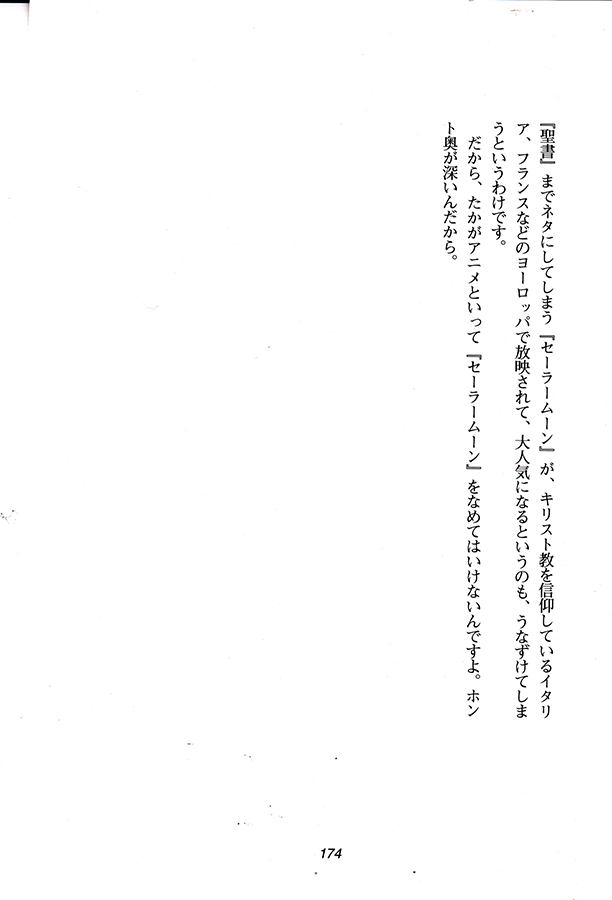 『聖書』までネタにしてしまう『セーラームーン』が、キリスト教を信仰しているイタリ
ア、フランスなどのヨーロッパで放映されて、大人気になるというのも、うなずけてしま
うというわけです。
だから、たかがアニメといって『セーラームーン』をなめてはいけないんですよ。ホン
ト奥が深いんだから。
174